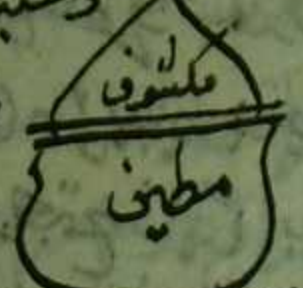 مكشوف
مطين